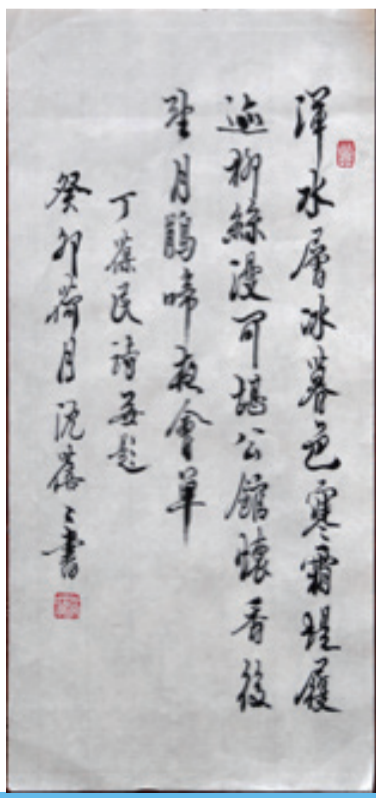 渾水層冰暮色寒霜堤履
迹柳絲漫可堪公館懷香後
望月鵑啼夜會單
丁葆民詩無題
癸卯荷月沈書